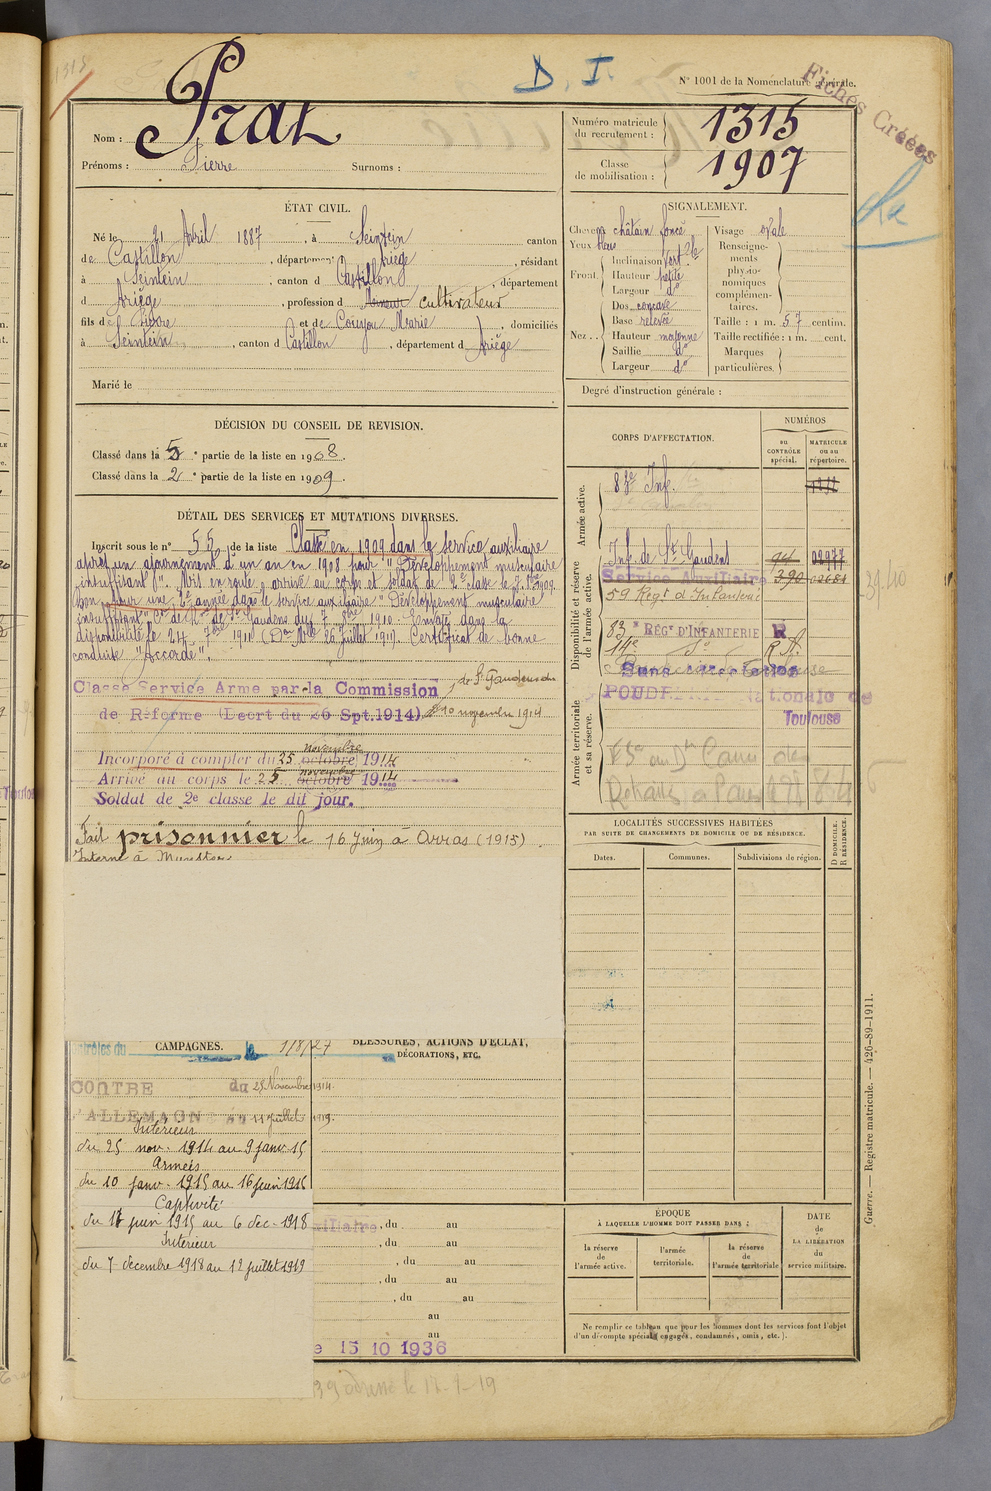 1315
D. I.
N° 1001 de la Nomenclature générale.
Fiches Créées
Nom : Prat
Prénoms : Pierre Surnoms :
Numéro matricule du recrutement : 1315
Classe de mobilisation : 1907
ÉTAT CIVIL.
Né le 21 Avril 1887, à Seintein canton
de Castillon, département Ariège, résidant
à Seintein, canton d Castillon, département
d Ariège, profession d cultivateur
fils de Pierre et de Coujou Marie, domiciliés
à Seintein, canton d Castillon, département d Ariège
Marié le
SIGNALEMENT.
Cheveux châtain foncé
Yeux bleus
Front. Inclinaison fort.
Hauteur petite
Largeur d°
Nez.. Dos concave
Base relevée
Hauteur moyenne
Saillie d°
Largeur d°
Visage ovale
Renseignements physionomiques complémentaires.
Taille : 1 m. 57 centim.
Taille rectifiée : 1 m. cent.
Marques particulières.
Degré d'instruction générale :
DÉCISION DU CONSEIL DE REVISION.
Classé dans la 5 e partie de la liste en 1908.
Classé dans la 2 e partie de la liste en 1909.
DÉTAIL DES SERVICES ET MUTATIONS DIVERSES.
Inscrit sous le n° 55 de la liste Classé en 1909 dans le service auxiliaire
après un ajournement d'un an en 1908 pour "Développement musculaire
insuffisant". Mis en route, arrivé au corps et soldat de 2e classe le 7 8bre 1909.
Bon pour une 2e année dans le service auxiliaire "Développement musculaire
insuffisant" St Gaudens du 7 1910. Envoyé dans la
disponibilité le 24 7bre 1911 Certificat de bonne
conduite "Accordé".
Classé Service Armé par la Commission de St Gaudens du
de Réforme (Décret du 26 Spt.1914) 10 novembre 1914
Incorporé à compter du 25 octobre novembre 1914
Arrivé au corps le 25 octobre novembre 1914
Soldat de 2e classe le dit jour.
Fait prisonnier le 16 Juin à Arras (1915)
Interné à Munster
CORPS D'AFFECTATION.
NUMÉROS
au CONTRÔLE spécial.
MATRICULE ou au répertoire.
Armée active.
83e Inf.
Disponibilité et réserve de l'armée active.
Inf. de St Gaudens 02977
Service Auxiliaire 390
59 Régt d'Infanterie
83 e RÉGt D'INFANTERIE R
14e d° R.A.
Sans affectation
POUDRERIE Nationale de
Toulouse
Armée territoriale et sa réserve.
LOCALITÉS SUCCESSIVES HABITÉES
PAR SUITE DE CHANGEMENTS DE DOMICILE OU DE RÉSIDENCE.
Dates. Communes. Subdivisions de région. D DOMICILE. R RÉSIDENCE.
CAMPAGNES.
1/8/27
BLESSURES, ACTIONS D'ÉCLAT,
DÉCORATIONS, ETC.
CONTRE du 25 Novembre 1914.
L'ALLEMAGNE au 11 Juillet 1919.
Intérieur
du 25 nov. 1914 au 9 janv 15
Armées
du 10 janv. 1915 au 16 juin 1915
Captivité
du 17 juin 1915 au 6 dec. 1918
Intérieur
du 7 decembre 1918 au 12 juillet 1919
, du au
, du au
, du au
, du au
, du au
au
au
15 10 1936
ÉPOQUE
À LAQUELLE L'HOMME DOIT PASSER DANS :
la réserve de l'armée active.
l'armée territoriale.
la réserve de l'armée territoriale
DATE de LA LIBÉRATION du service militaire.
Ne remplir ce tableau que pour les hommes dont les services font l'objet
d'un décompte spécial (engagés, condamnés, omis, etc.).
Guerre. — Registre matricule. — 426-89-1911.